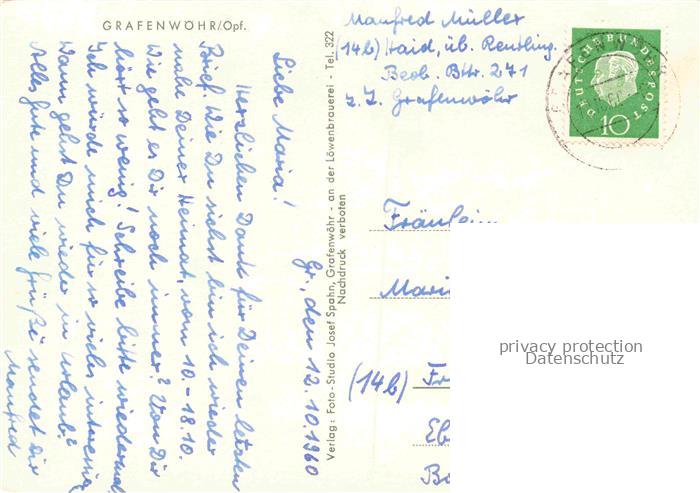 GRAFENWÖHR/Opf.
Gr., den 12.10.1960
Liebe Maria!
Herzlichen Dank für Deinen letzten
Brief. Wie Du siehst bin ich wieder
nahe Deiner Heimat, vom 10.-18.10.
Wie geht es Dir noch immer? Von Dir
hört so wenig! Schreibe bitte wiedermal
Ich würde mich für so vieles interessig
Wann gehst Du wieder in Urlaub?
Alles Gute und viele Grüße sendet Dir
Manfred
Verlag: Foto-Studio Josef Spahn, Grafenwöhr - an der Löwenbrauerei - Tel. 322
Nachdruck verboten
Manfred Müller
(14b) Haid, üb. Reutling.
Beob. Bttr. 271
z. Z. Grafenwöhr
DEUTSCHE BUNDESPOST
10
Fräulein
Mari
(14b) Fr
Eb
Bo
privacy protection
Datenschutz